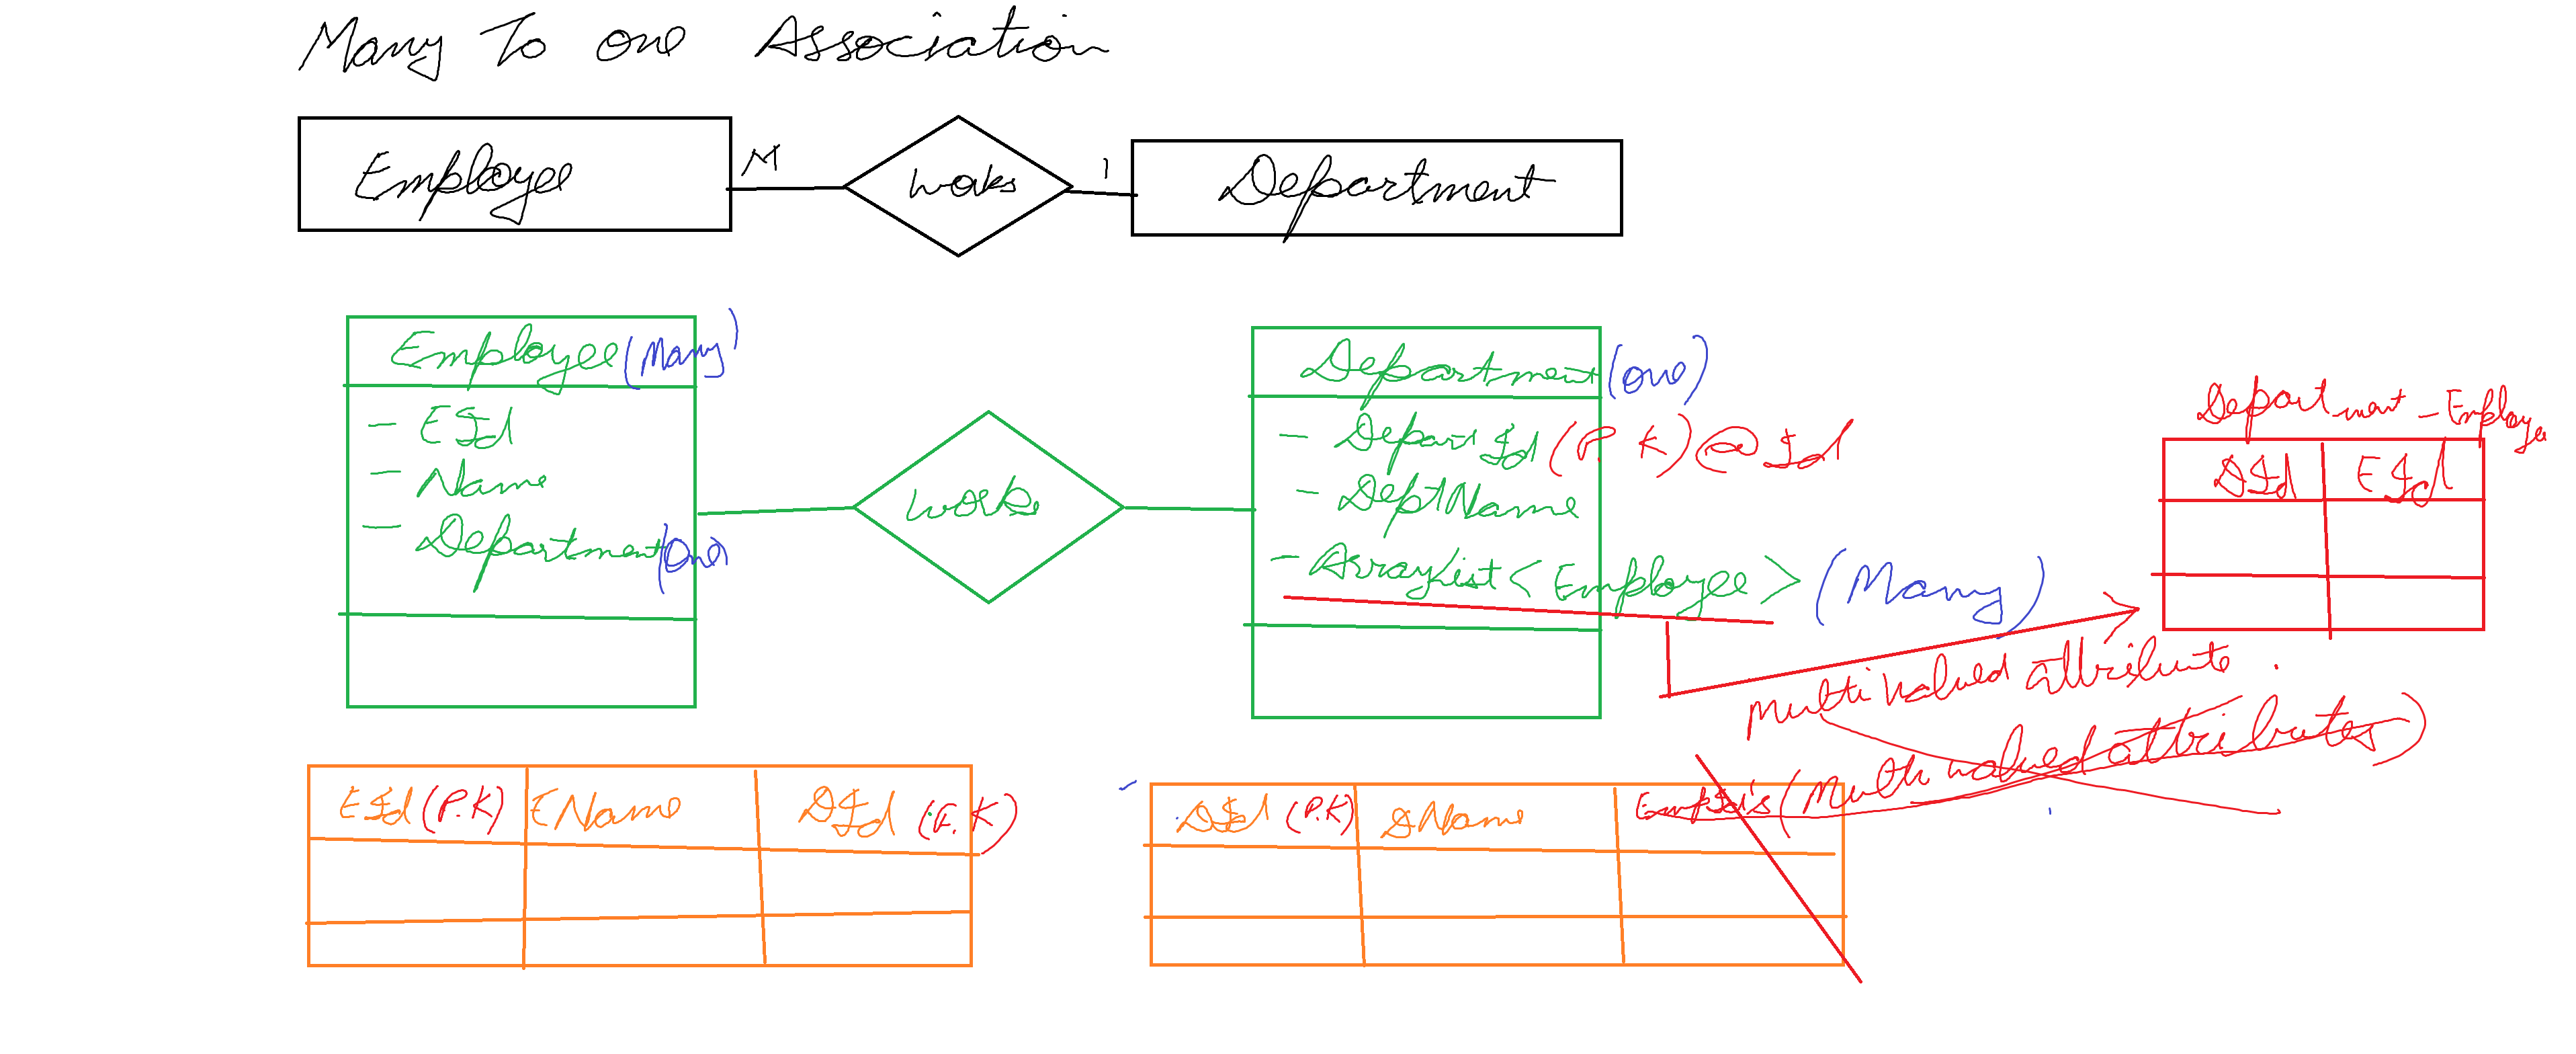 Many To one Association
Employee
M
works
1
Department
Employee (Many)
- EId
- Name
- Department (One)
works
Department (one)
- Depart Id (P.K) @Id
- DeptName
- ArrayList<Employee> (Many)
Department - Employe
DId EId
multi valued attribute.
EId (P.K) EName DId (F.K)
DId (P.K) DName EmpId's (Multi valued attributes)